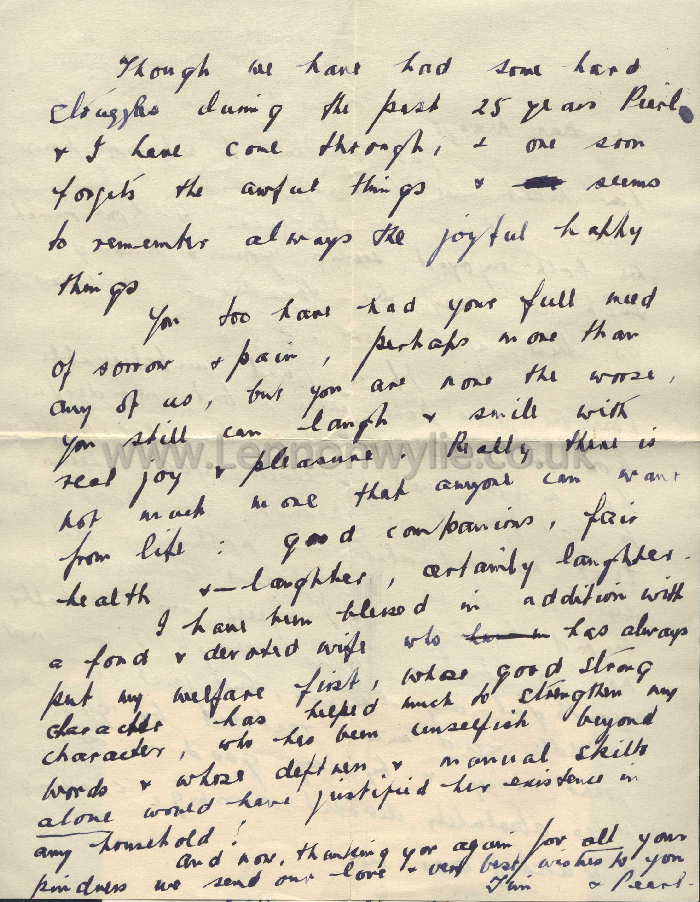 Though we have had some hard
struggles during the past 25 years Pearl
& I have come through, & one soon
forgets the awful things & seems
to remember always the joyful happy
things
You too have had your full meed
of sorrow & pain, perhaps more than
any of us, but you are none the worse,
you still can laugh & smile with
real joy & pleasure. Really there is
www.Lennonwylie.co.uk
not much more that anyone can want
from life: good companions, fair
health & — laughter, certainly laughter.
I have been blessed in addition with
a fond & devoted wife who has always
put my welfare first, whose good strong
character has helped much to strengthen my
character, who has been unselfish beyond
words & whose deftness & manual skills
alone would have justified her existence in
any household!
And now, thanking you again for all your
kindness we send our love & very best wishes to you
Jim & Pearl.